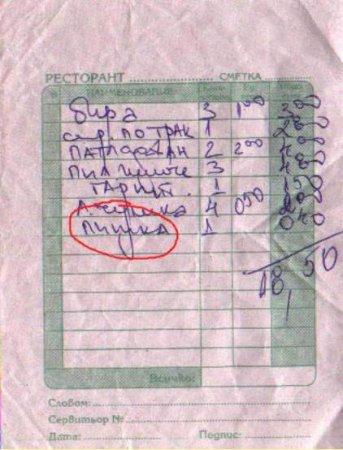 РЕСТОРАНТ СМЕТКА
НАИМЕНОВАНИЕ
бира 3 1 00 3 00
сир. ПО ТРАК 1 2 80
2 2 00 4 00
ПИЛ шишче 3 4 80
ГАРНИТ. 1 1 50
чушка 4 0 50 2 00
1 0 40
18,50
Всичко:
Словом:
Сервитьор №
Дата: Подпис: